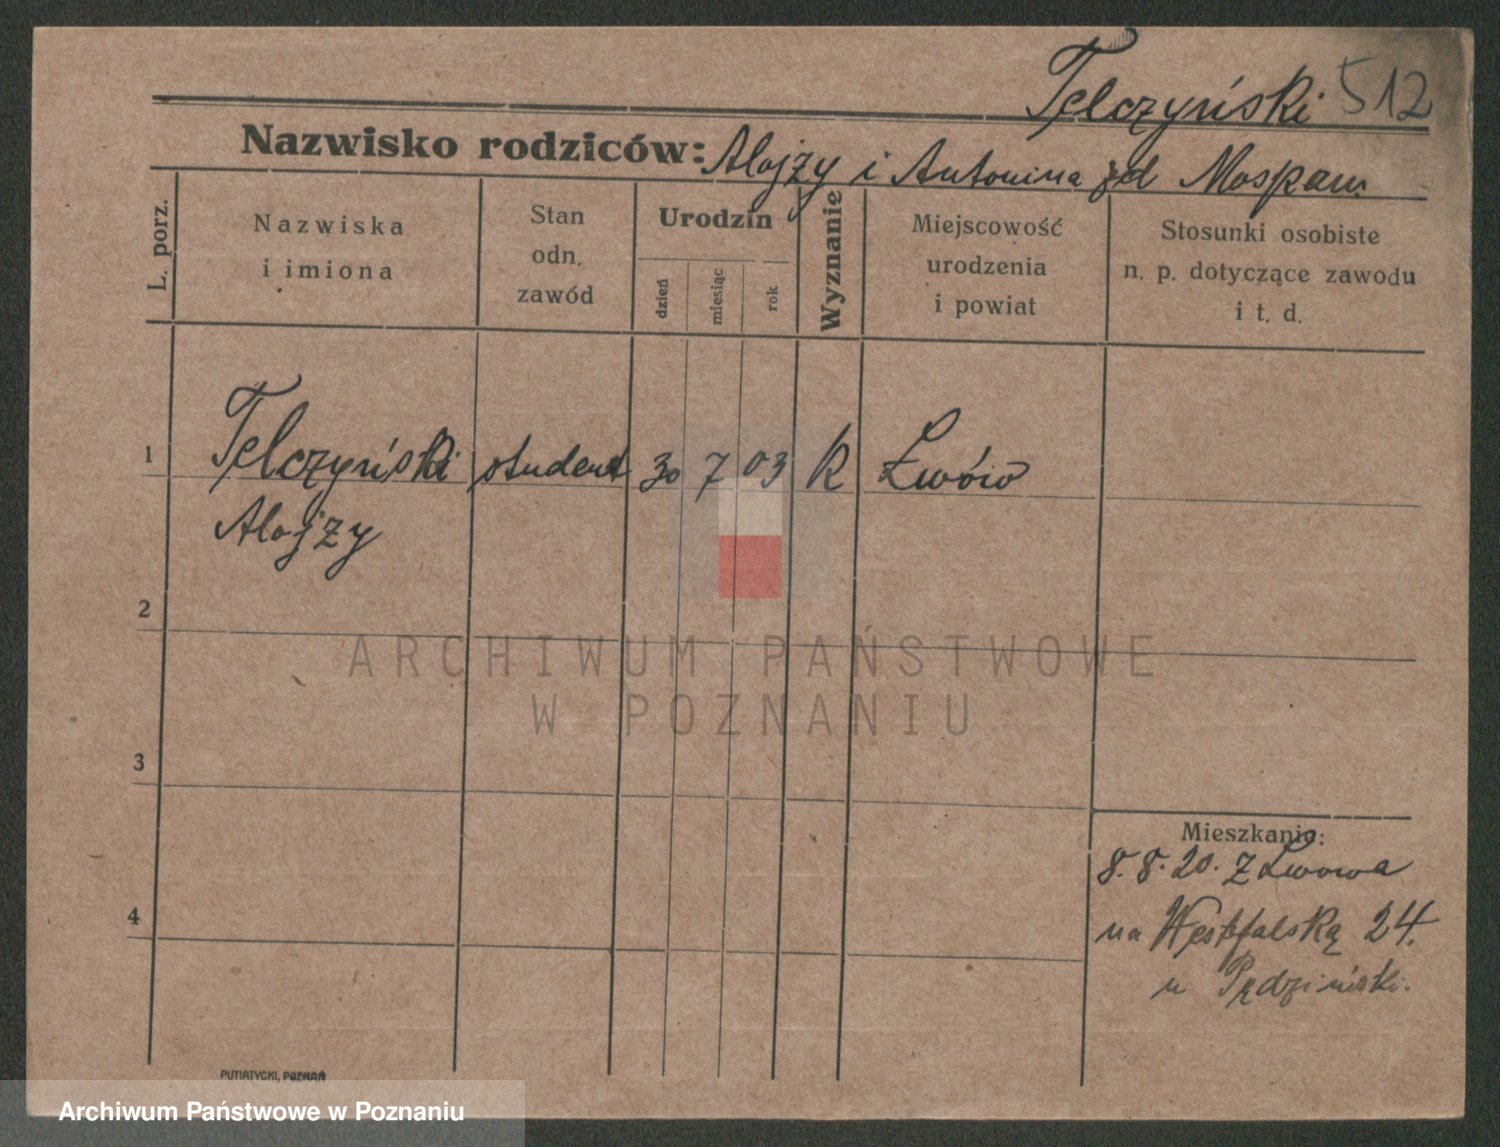 Telczyński 512
Nazwisko rodziców: Alojzy i Antonina zd Moskam.
L. porz.
Nazwiska
i imiona
Stan
odn.
zawód
Urodzin
dzień
miesiąc
rok
Wyznanie
Miejscowość
urodzenia
i powiat
Stosunki osobiste
n. p. dotyczące zawodu
i t. d.
1 Telczyński student 30 7 03 R Lwów
Alojzy
2
ARCHIWUM PAŃSTWOWE
W POZNANIU
3
Mieszkanie:
8. 8. 20. z Lwowa
4
na Westfalską 24.
u Pędziński.
PUTIATYCKI, POZNAŃ
Archiwum Państwowe w Poznaniu